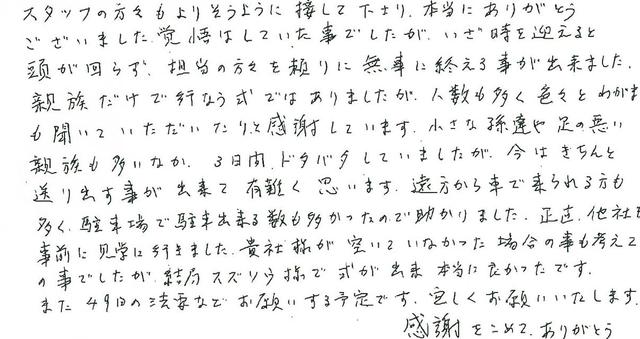 スタッフの方々もよりそうように接して下さり、本当にありがとう
ございました。覚悟はしていた事でしたが、いざ時を迎えると
頭が回らず、担当の方々を頼りに無事に終える事が出来ました。
親族だけで行なう式ではありましたが、人数も多く色々とわがま
も聞いていただいたりと感謝しています。小さな孫達や足の悪い
親族も多いなか、3日間、ドタバタしていましたが、今はきちんと
送り出す事が出来て有難く思います。遠方から車で来られる方も
多く、駐車場で駐車出来る数も多かったので助かりました。正直、他社も
事前に見学に行きました。貴社様が空いていなかった場合の事も考えて
の事でしたが、結局スズリウ様で式が出来本当に良かったです。
また49日の法要などお願いする予定です。宜しくお願いいたします。
感謝をこめて、ありがとう